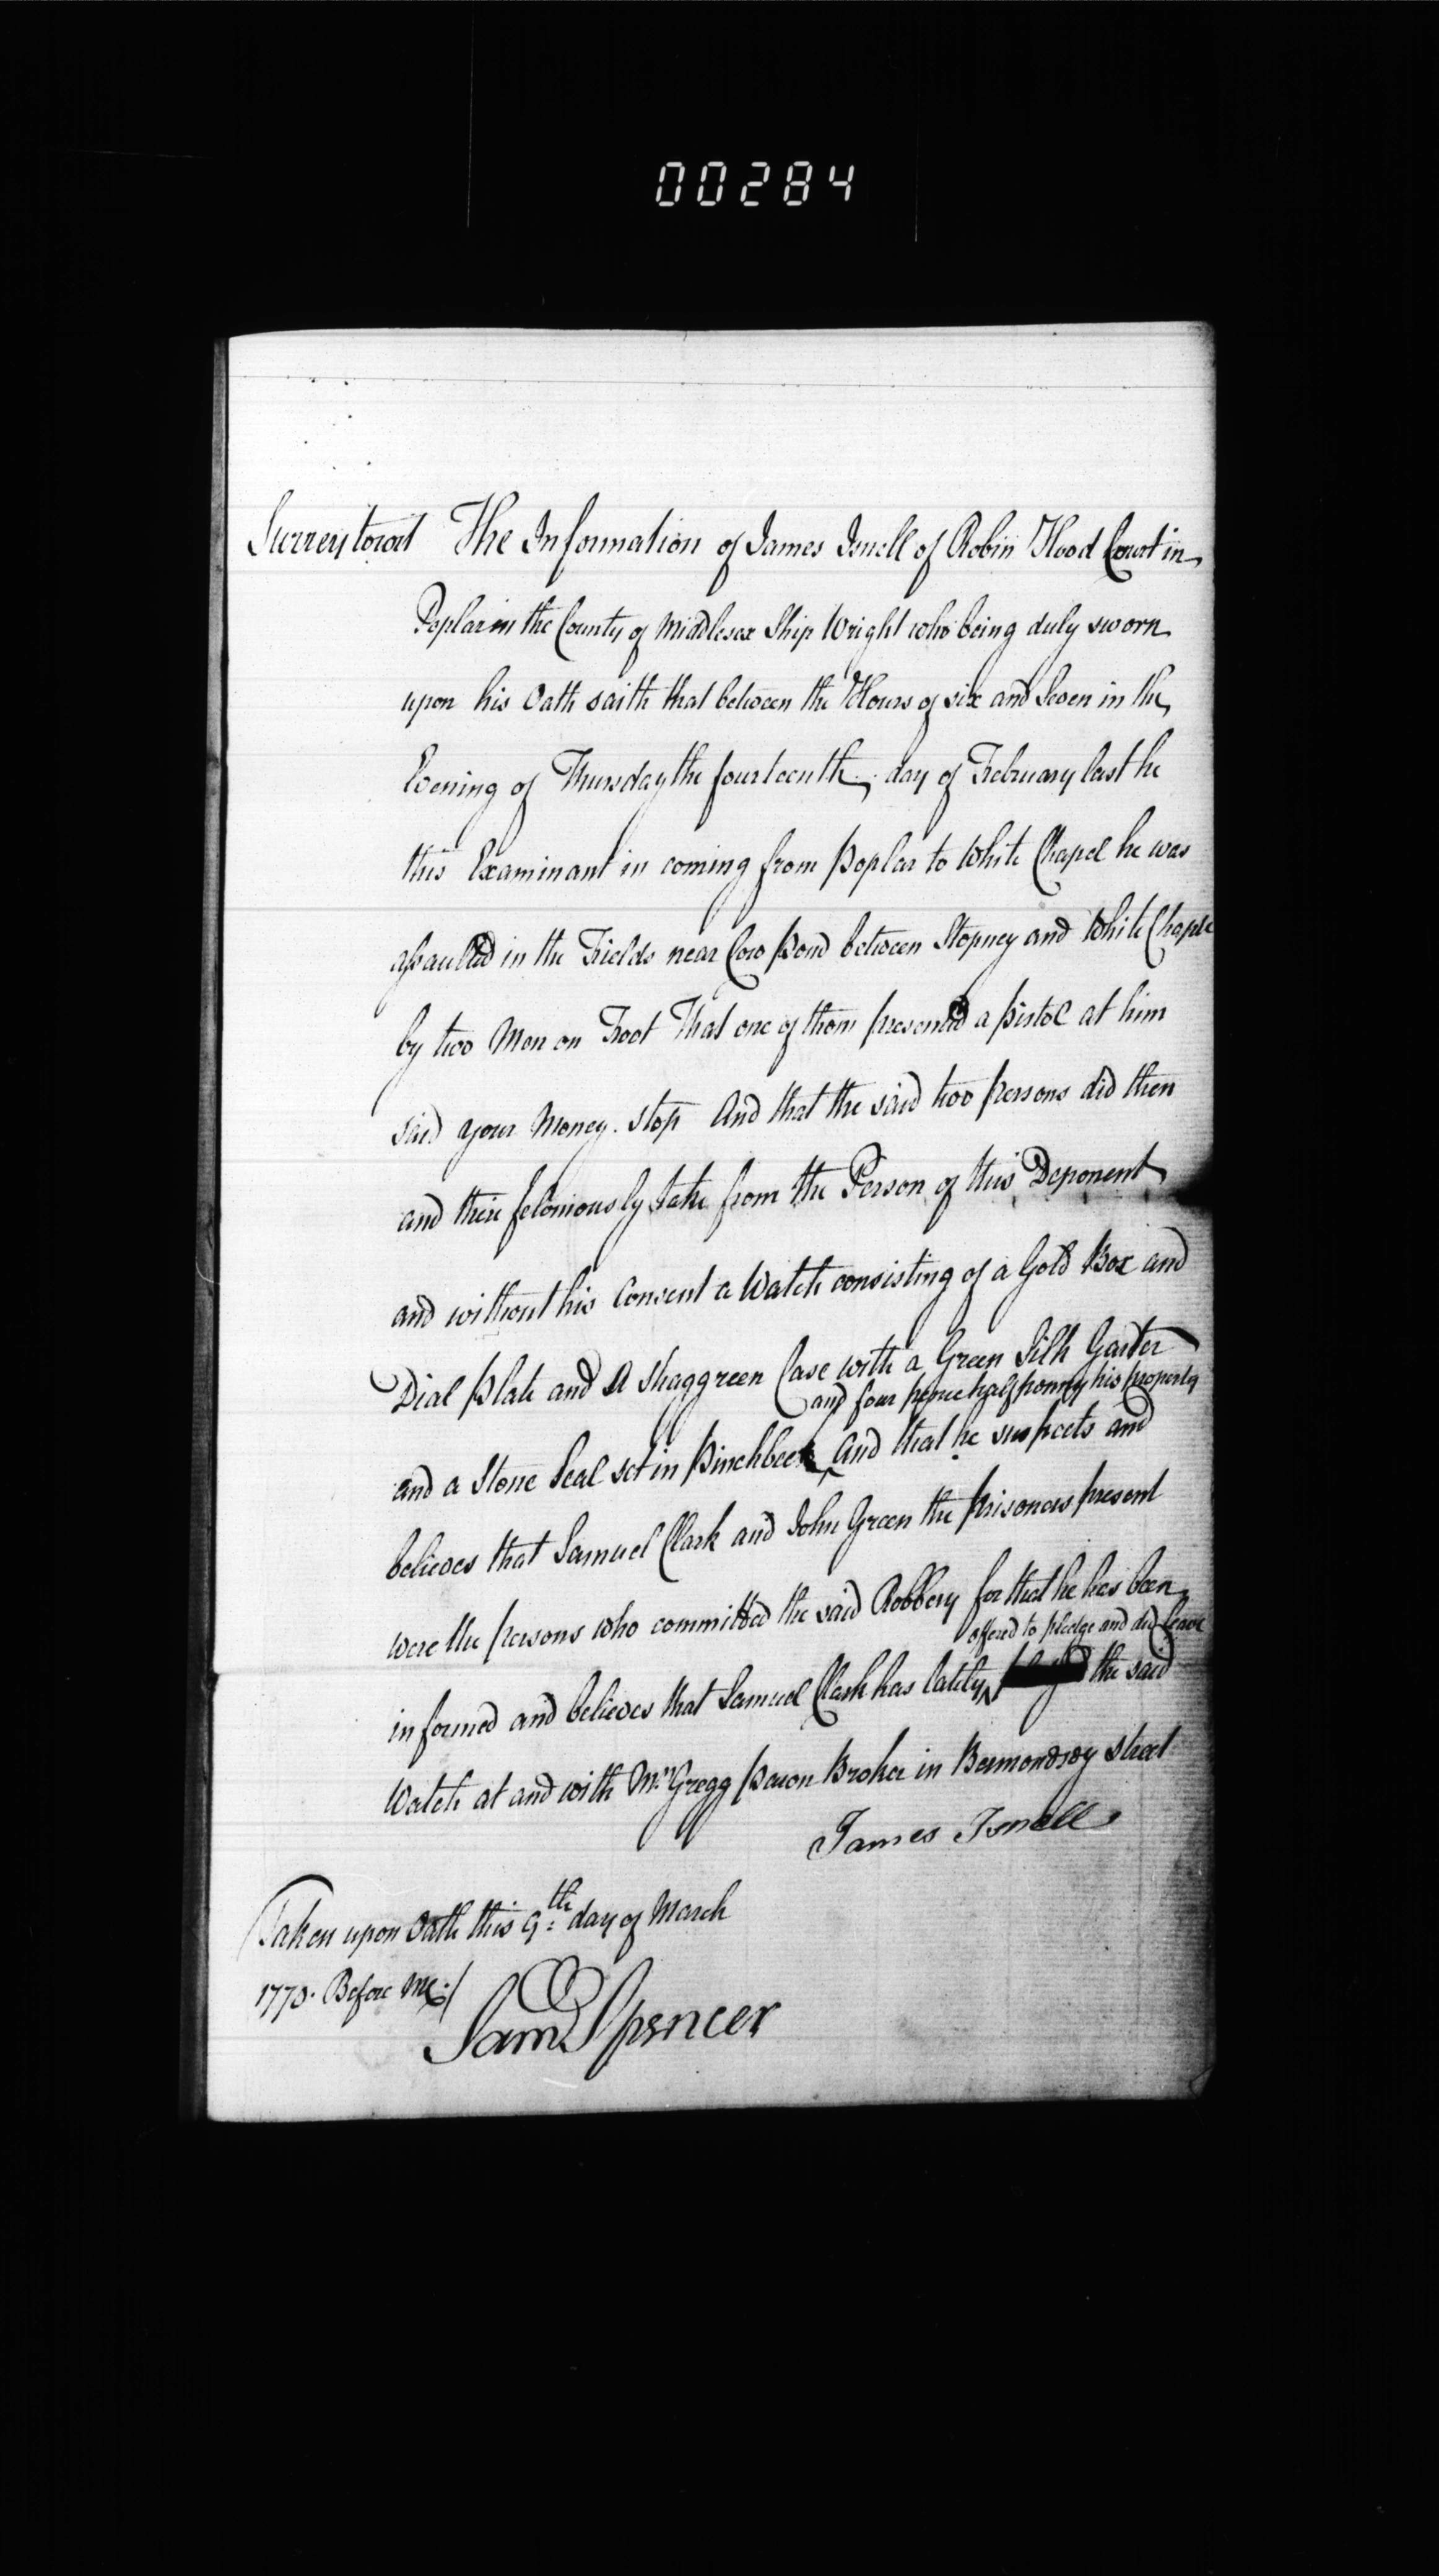 00284
Surrey towit The Information of James Isnell of Robin Hood Court in
Poplar in the County of Middlesex Ship Wright who being duly sworn
upon his Oath saith that between the Hours of six and Seven in the
Evening of Thursday the fourteenth day of February last he
this Examinant in coming from poplar to White Chapel he was
assaulted in the Fields near Cow pond between Stepney and White Chaple
by two Men on Foot That one of them presented a pistol at him
said your Money. stop And that the said two persons did then
and there feloniously take from the Person of this Deponent
and without his Consent a Watch consisting of a Gold Box and
Dial plate and A shaggreen Case with a Green Silk Garter
and four pence halfpenny his property
and a Stone Seal set in pinchbeck And that he suspects and
believes that Samuel Clark and John Green the prisoners present
were the persons who committed the said Robbery for that he has been
offered to pledge and did leave
informed and believes that Samuel Clark has lately the said
Watch at and with Mr. Gregg pawn Broker in Bermondsey street
James Isnell
Taken upon Oath this 9th: day of March
1773. Before Me./
Saml Spencer